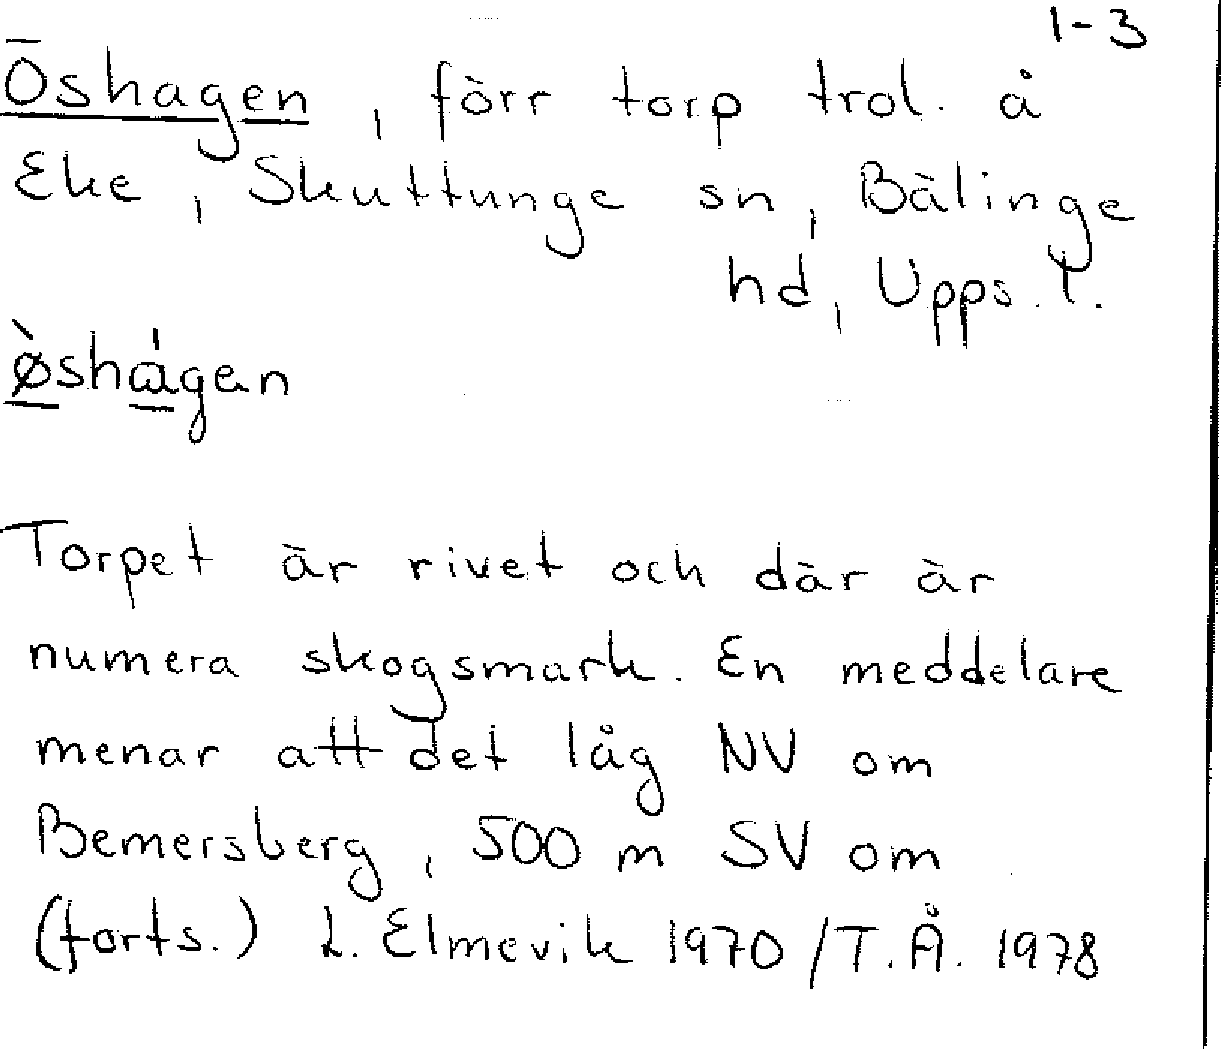 1-3
Öshagen, förr torp trol. å
Eke, Skuttunge sn, Bälinge
hd, Upps. l.
ø̀shágen
Torpet är rivet och där är
numera skogsmark. En meddelare
menar att det låg NV om
Bemersberg, 500 m SV om
(forts.) L. Elmevik 1970 / T.Å. 1978